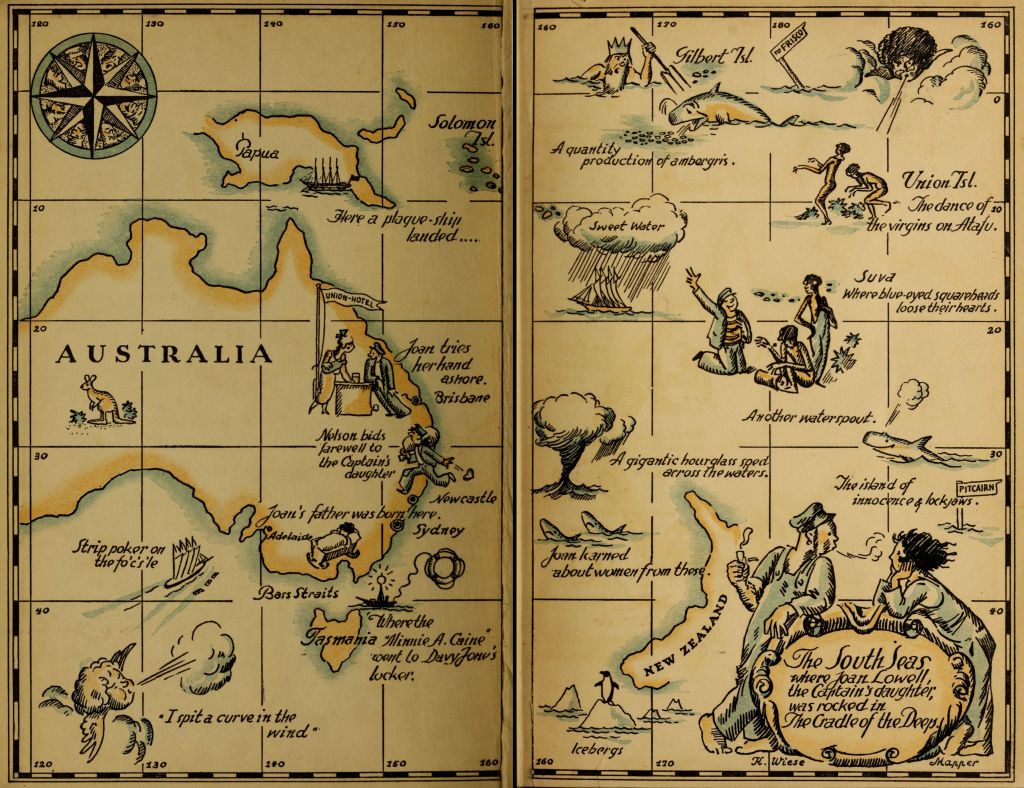 120 130 140 150 160
Papua
Solomon
Isl.
10
Here a plague-ship
landed....
UNION-HOTEL
20
AUSTRALIA
Joan tries
her hand
ashore.
Brisbane
Nelson bids
farewell to
the Captain's
daughter
30
Newcastle
Joan's father was born here.
Sydney
Adelaide
Strip poker on
the fo'c's'le
Bass Straits
40
Tasmania
Where the
"Minnie A. Caine"
went to Davy Jone's
locker.
"I spit a curve in the
wind"
120 130 140 150 160
160 170 180 160
Gilbert Isl.
TO FRISCO
0
A quantity
production of ambergris.
Union Isl.
10
The dance of
the virgins on Atafu.
Sweet Water
Suva
Where blue-eyed squareheads
loose their hearts.
20
Another waterspout.
30
A gigantic hourglass sped
across the waters.
The island of
innocence & lockjaws.
PITCAIRN
Joan learned
about women from these.
40
NEW ZEALAND
The South Seas,
where Joan Lowell,
the Captain's daughter,
was rocked in
The Cradle of the Deep.
Icebergs
160 170 180 160
K. Wiese
Mapper